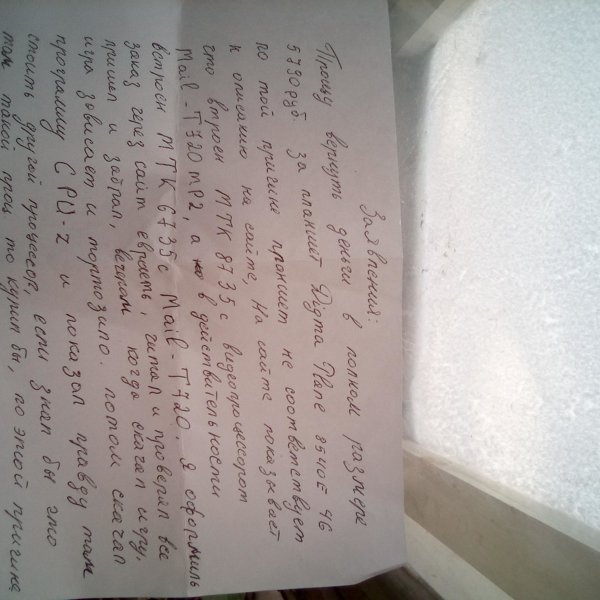 Заявления:
Прошу вернуть деньги в полном размере
5790 руб. за планшет Digma Plane 8540E 4G
по той причине планшет не соответствует
к описанию на сайте, На сайте показывает
что втроен МТК 8735 с видеопроцессором
Mail-T720 MP2, а в действительности
встроен МТК 6735 с Mail-T720. Я оформиль
заказ через сайт евросеть, читал и проверял все
пришел и забрал, вечером когда скачал игру,
игра зависает и тормозило. потом скачал
программу CPU-Z и показал правду там
стоить другой процессор, если знал бы что
там такой проц то купил бы, по этой причине